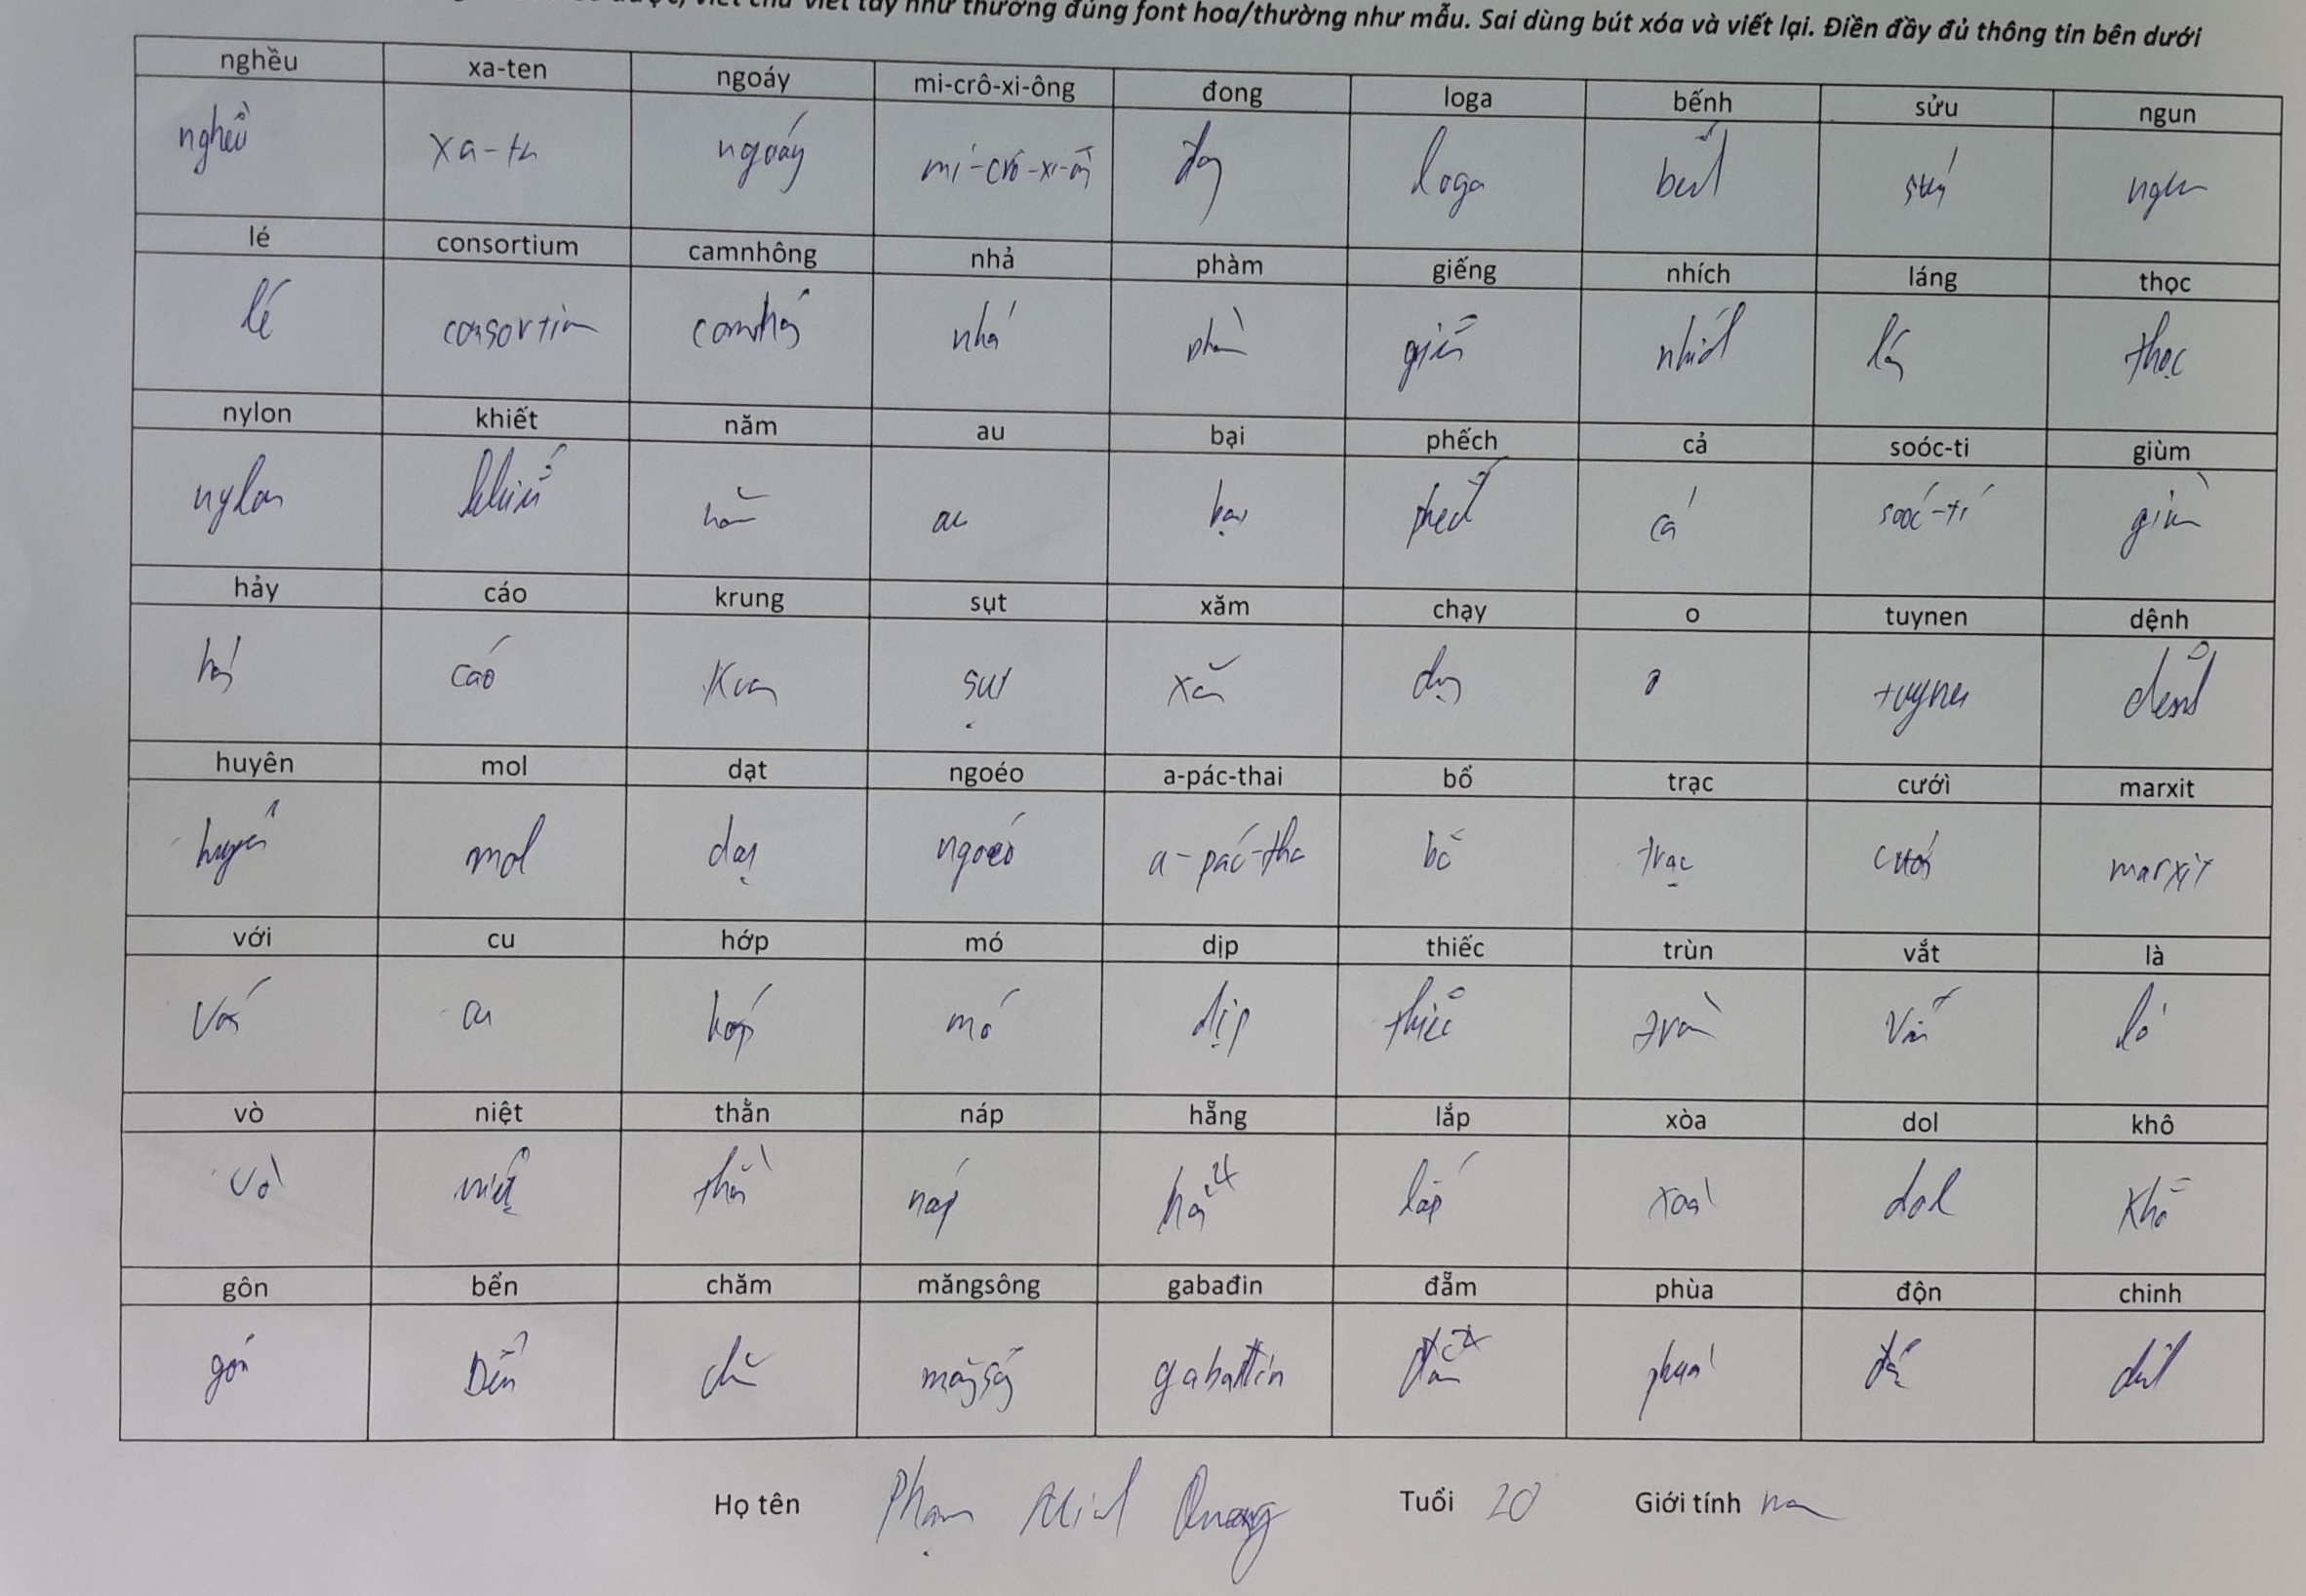 viết chữ viết tay như thường đúng font hoa/thường như mẫu. Sai dùng bút xóa và viết lại. Điền đầy đủ thông tin bên dưới
nghều xa-ten ngoáy mi-crô-xi-ông đong loga bếnh sửu ngun
nghều xa-ten ngoáy mi-crô-xi-ông đong loga bếnh sửu ngun
lé consortium camnhông nhả phàm giếng nhích láng thọc
lé consortium camnhông nhả phàm giếng nhích láng thọc
nylon khiết năm au bại phếch cả soóc-ti giùm
nylon khiết năm au bại phếch cả soóc-ti giùm
hảy cáo krung sụt xăm chạy o tuynen dệnh
hảy cáo krung sụt xăm chạy o tuynen dệnh
huyên mol dạt ngoéo a-pác-thai bổ trạc cưới marxit
huyên mol dạt ngoéo a-pác-thai bổ trạc cưới marxit
với cu hớp mó dịp thiếc trùn vắt là
với cu hớp mó dịp thiếc trùn vắt là
vò niệt thằn náp hẵng lắp xòa dol khô
vò niệt thằn náp hẵng lắp xòa dol khô
gôn bển chăm măngsông gabađin đẵm phùa độn chinh
gôn bển chăm măngsông gabađin đẵm phùa độn chinh
Họ tên Phạm Minh Quang Tuổi 20 Giới tính nam